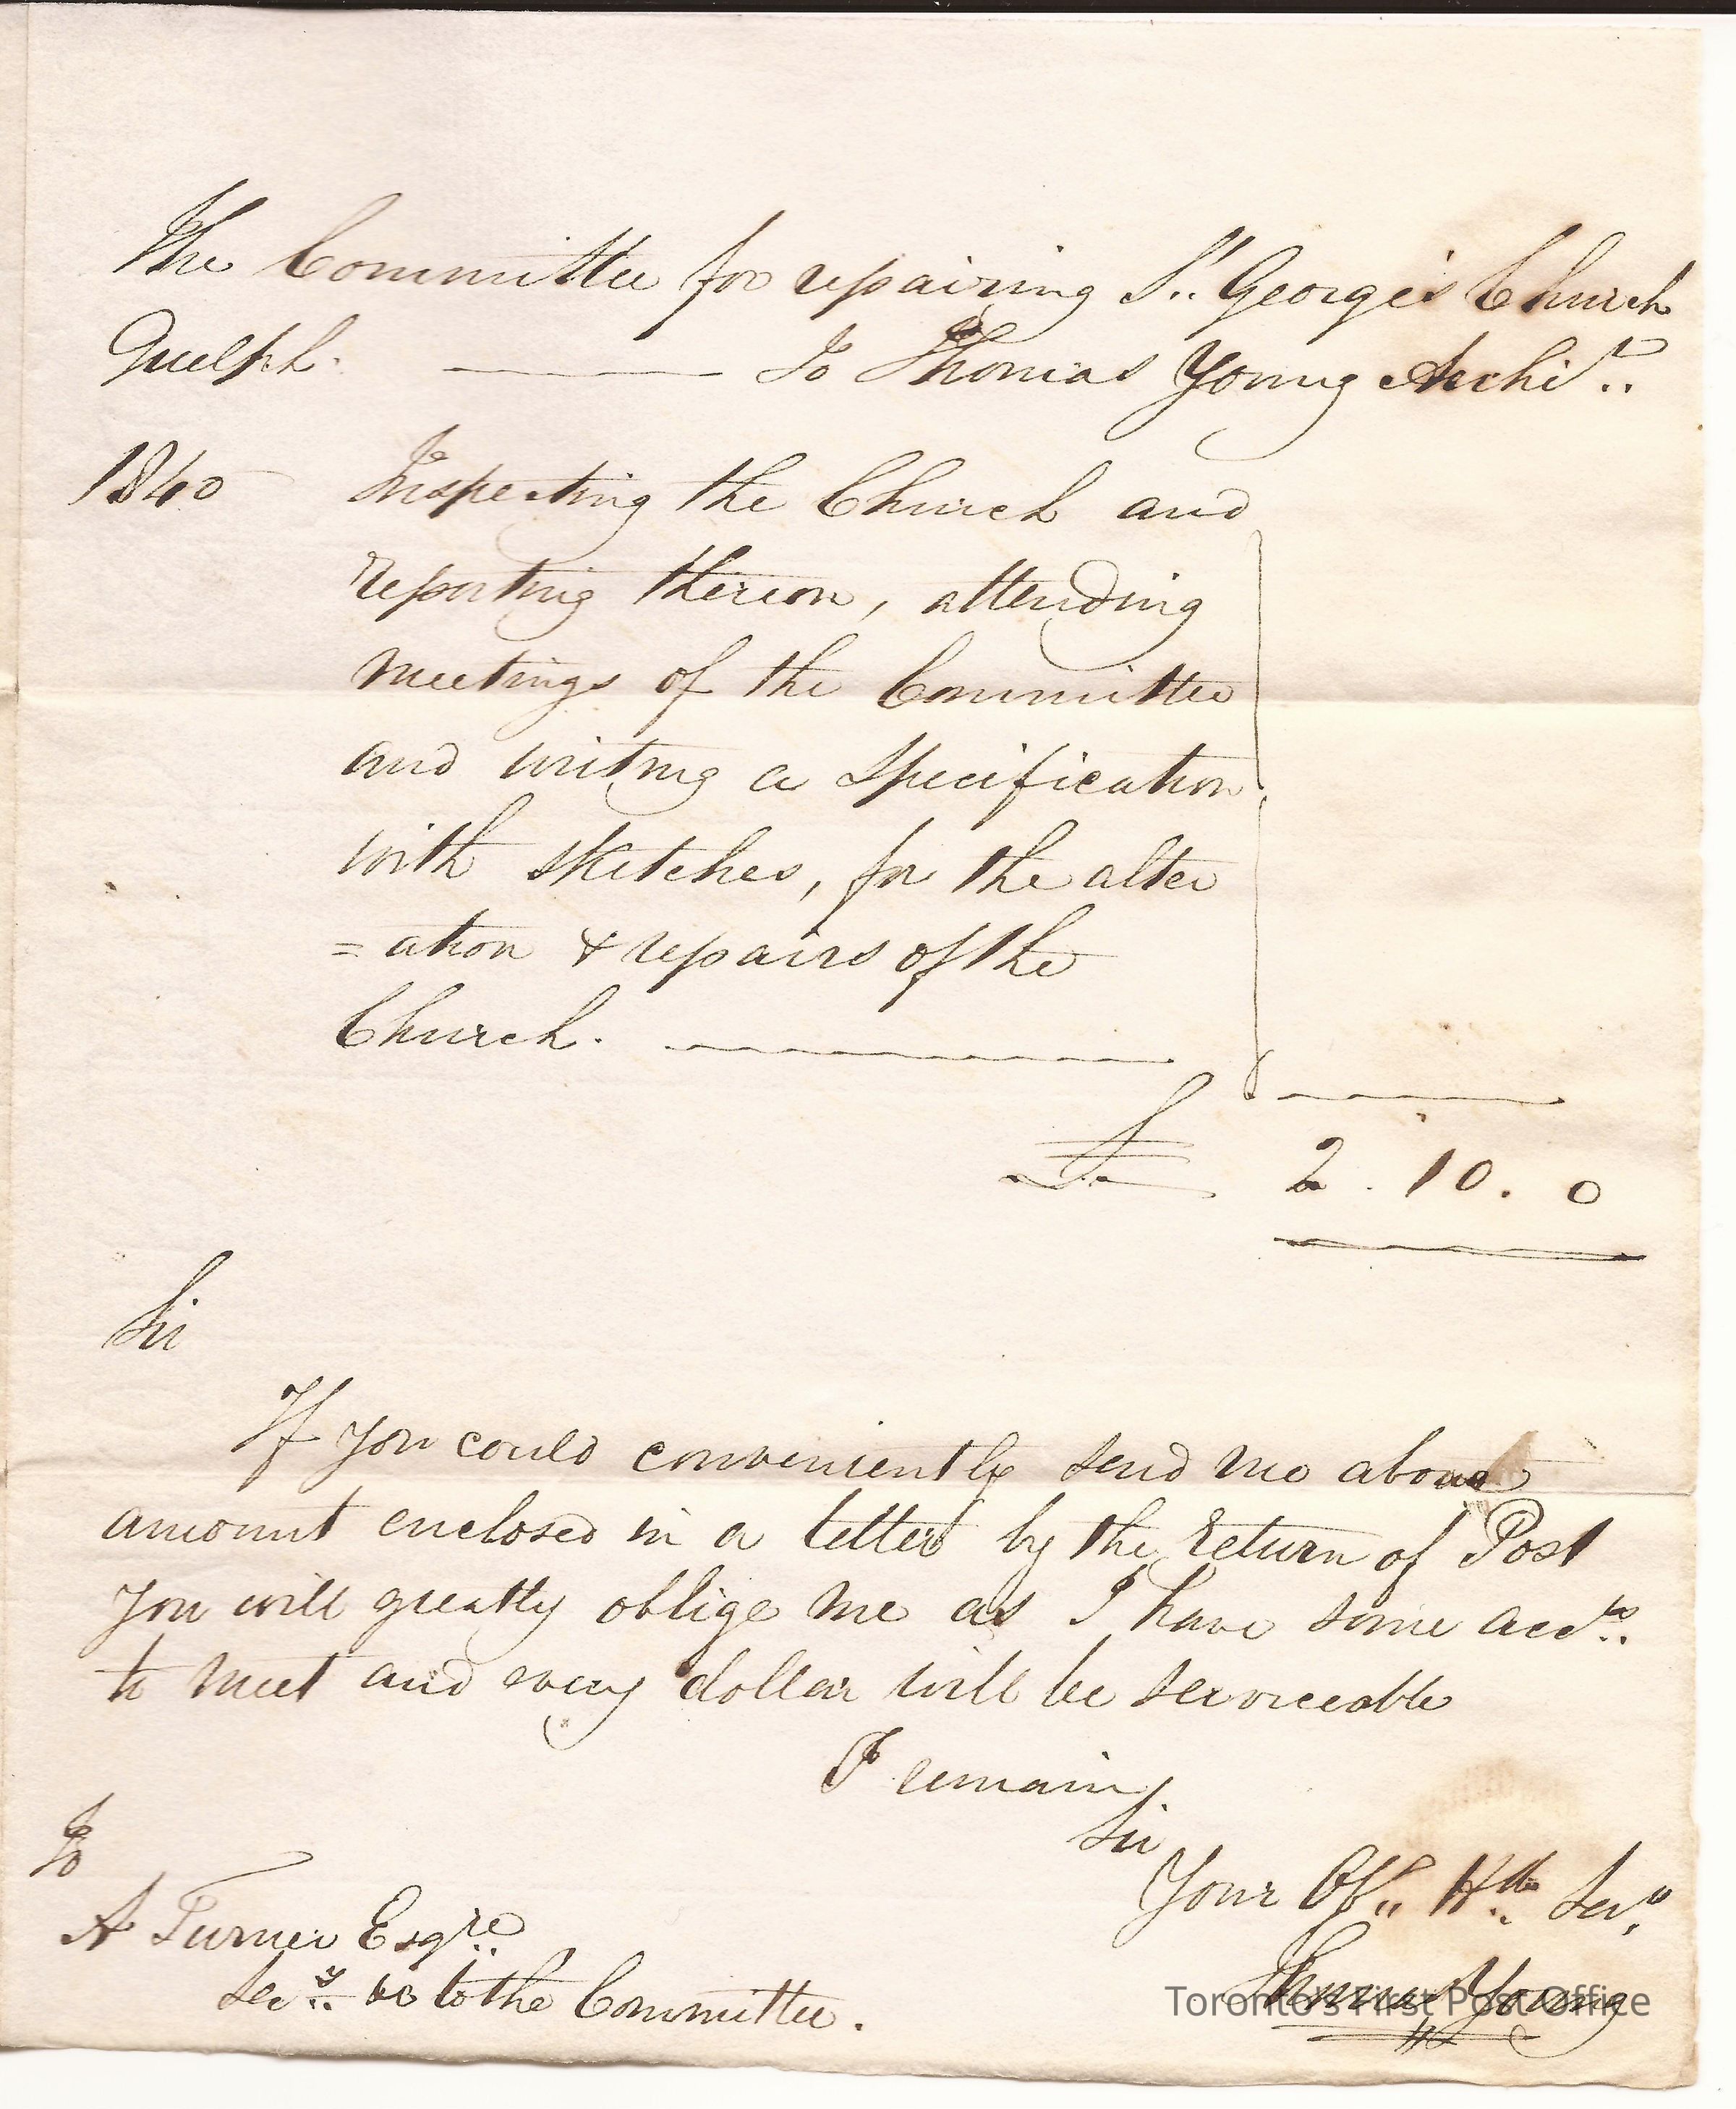 The Committee for repairing St. George's Church
Guelph. ——— To Thomas Young Archit..
1840 Inspecting the Church and
reporting thereon, attending
meetings of the Committee
and writing a Specification
with sketches, for the alter
=ation & repairs of the
Church. ———
£ 2 . 10 . 0
Sir
If you could conveniently send me above
amount enclosed in a letter by the return of Post
you will greatly oblige me as I have some accts..
to meet and every dollar will be serviceable
I remain
Sir
Your Obt.. Hble.. Servt
Thomas Young
To
A Turner Esqre
Secy.. to the Committee.
Toronto's First Post Office